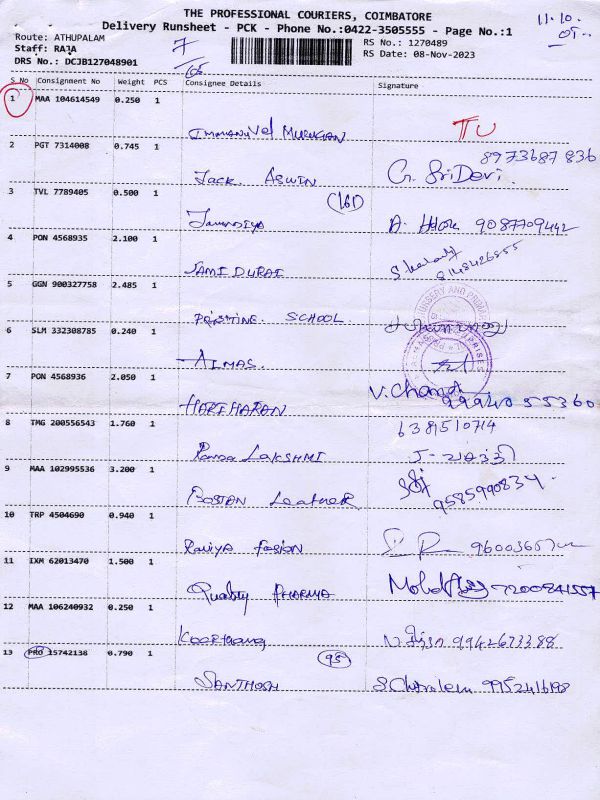 THE PROFESSIONAL COURIERS, COIMBATORE
11.10
Delivery Runsheet - PCK - Phone No.:0422-3505555 - Page No.:1
Route: ATHUPALAM
7
RS No.: 1270489
Staff: RAJA
RS Date: 08-Nov-2023
DRS No.: DCJB127048901
S No Consignment No Weight PCS Consignee Details Signature
1 MAA 104614549 0.250 1
Immanuvel Murugan TU
2 PGT 7314008 0.745 1
8973687836
Jack. Aswin G. Sri Devi.
3 TVL 7789405 0.500 1
9087709442
4 PON 4568935 2.100 1
SAMI DURAI 8148426555
5 GGN 900327758 2.485 1
PRISTINE. SCHOOL
6 SLM 332308785 0.240 1
ALMAS.
7 PON 4568936 2.050 1
V. Chand
HARIHARAN 99940 55360
8 TMG 200556543 1.760 1
LAKSHMI
9 MAA 102995536 3.200 1
BOSTAN Leather 9585990834
10 TRP 4504690 0.940 1
Raviya Fasion
11 IXM 62013470 1.500 1
Quality PHARMA 7200841557
12 MAA 106240932 0.250 1
9942673388
13 PRO 15742138 0.790 1
SANTHOSH 9952416198